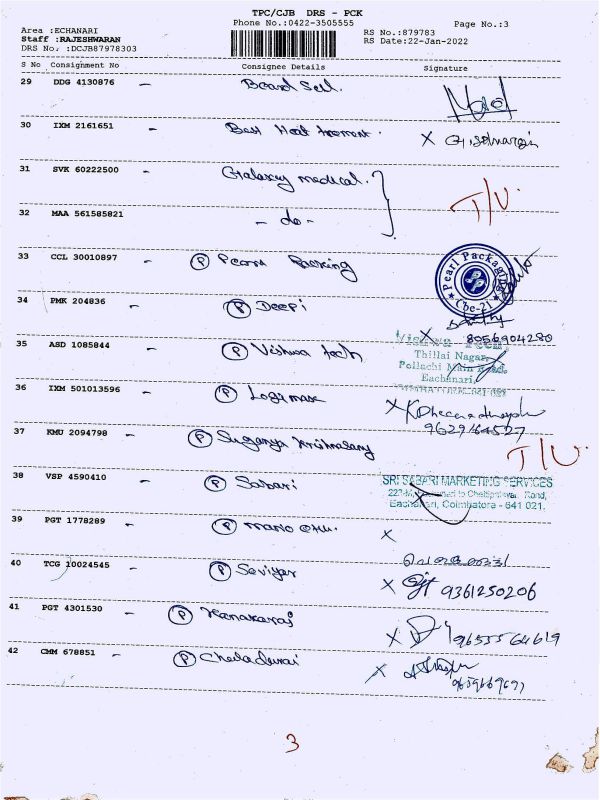 TPC/CJB DRS - PCK
Phone No.:0422-3505555
Page No.:3
Area :ECHANARI
Staff :RAJESHWARAN
DRS No. :DCJB87978303
RS No.:879783
RS Date:22-Jan-2022
S No Consignment No Consignee Details Signature
29 DDG 4130876 - Board Sell.
30 IXM 2161651 - Best Heat treatment. X
31 SVK 60222500 - Galaxey medical. T/U.
32 MAA 561585821 - do -
33 CCL 30010897 - P Pearl Packing
Pearl Packaging
Cbe-21
34 PMK 204836 - P Deepi
X 8056904280
35 ASD 1085844 - P Vishwa tech
Vishwa Tech
Thillai Nagar,
Pollachi Main Road,
Eachanari,
36 IXM 501013596 - P Logimax X
9629164527
37 KMU 2094798 - P Suganya Krishnasamy T/U.
38 VSP 4590410 - P Sabari
SRI SABARI MARKETING SERVICES
Eachanari, Coimbatore - 641 021.
39 PGT 1778289 - P X
40 TCG 10024545 - P Seviyar X 9361250206
41 PGT 4301530 - P Kanakaraj X 9655564619
42 CMM 678851 - P Cheladurai X
3